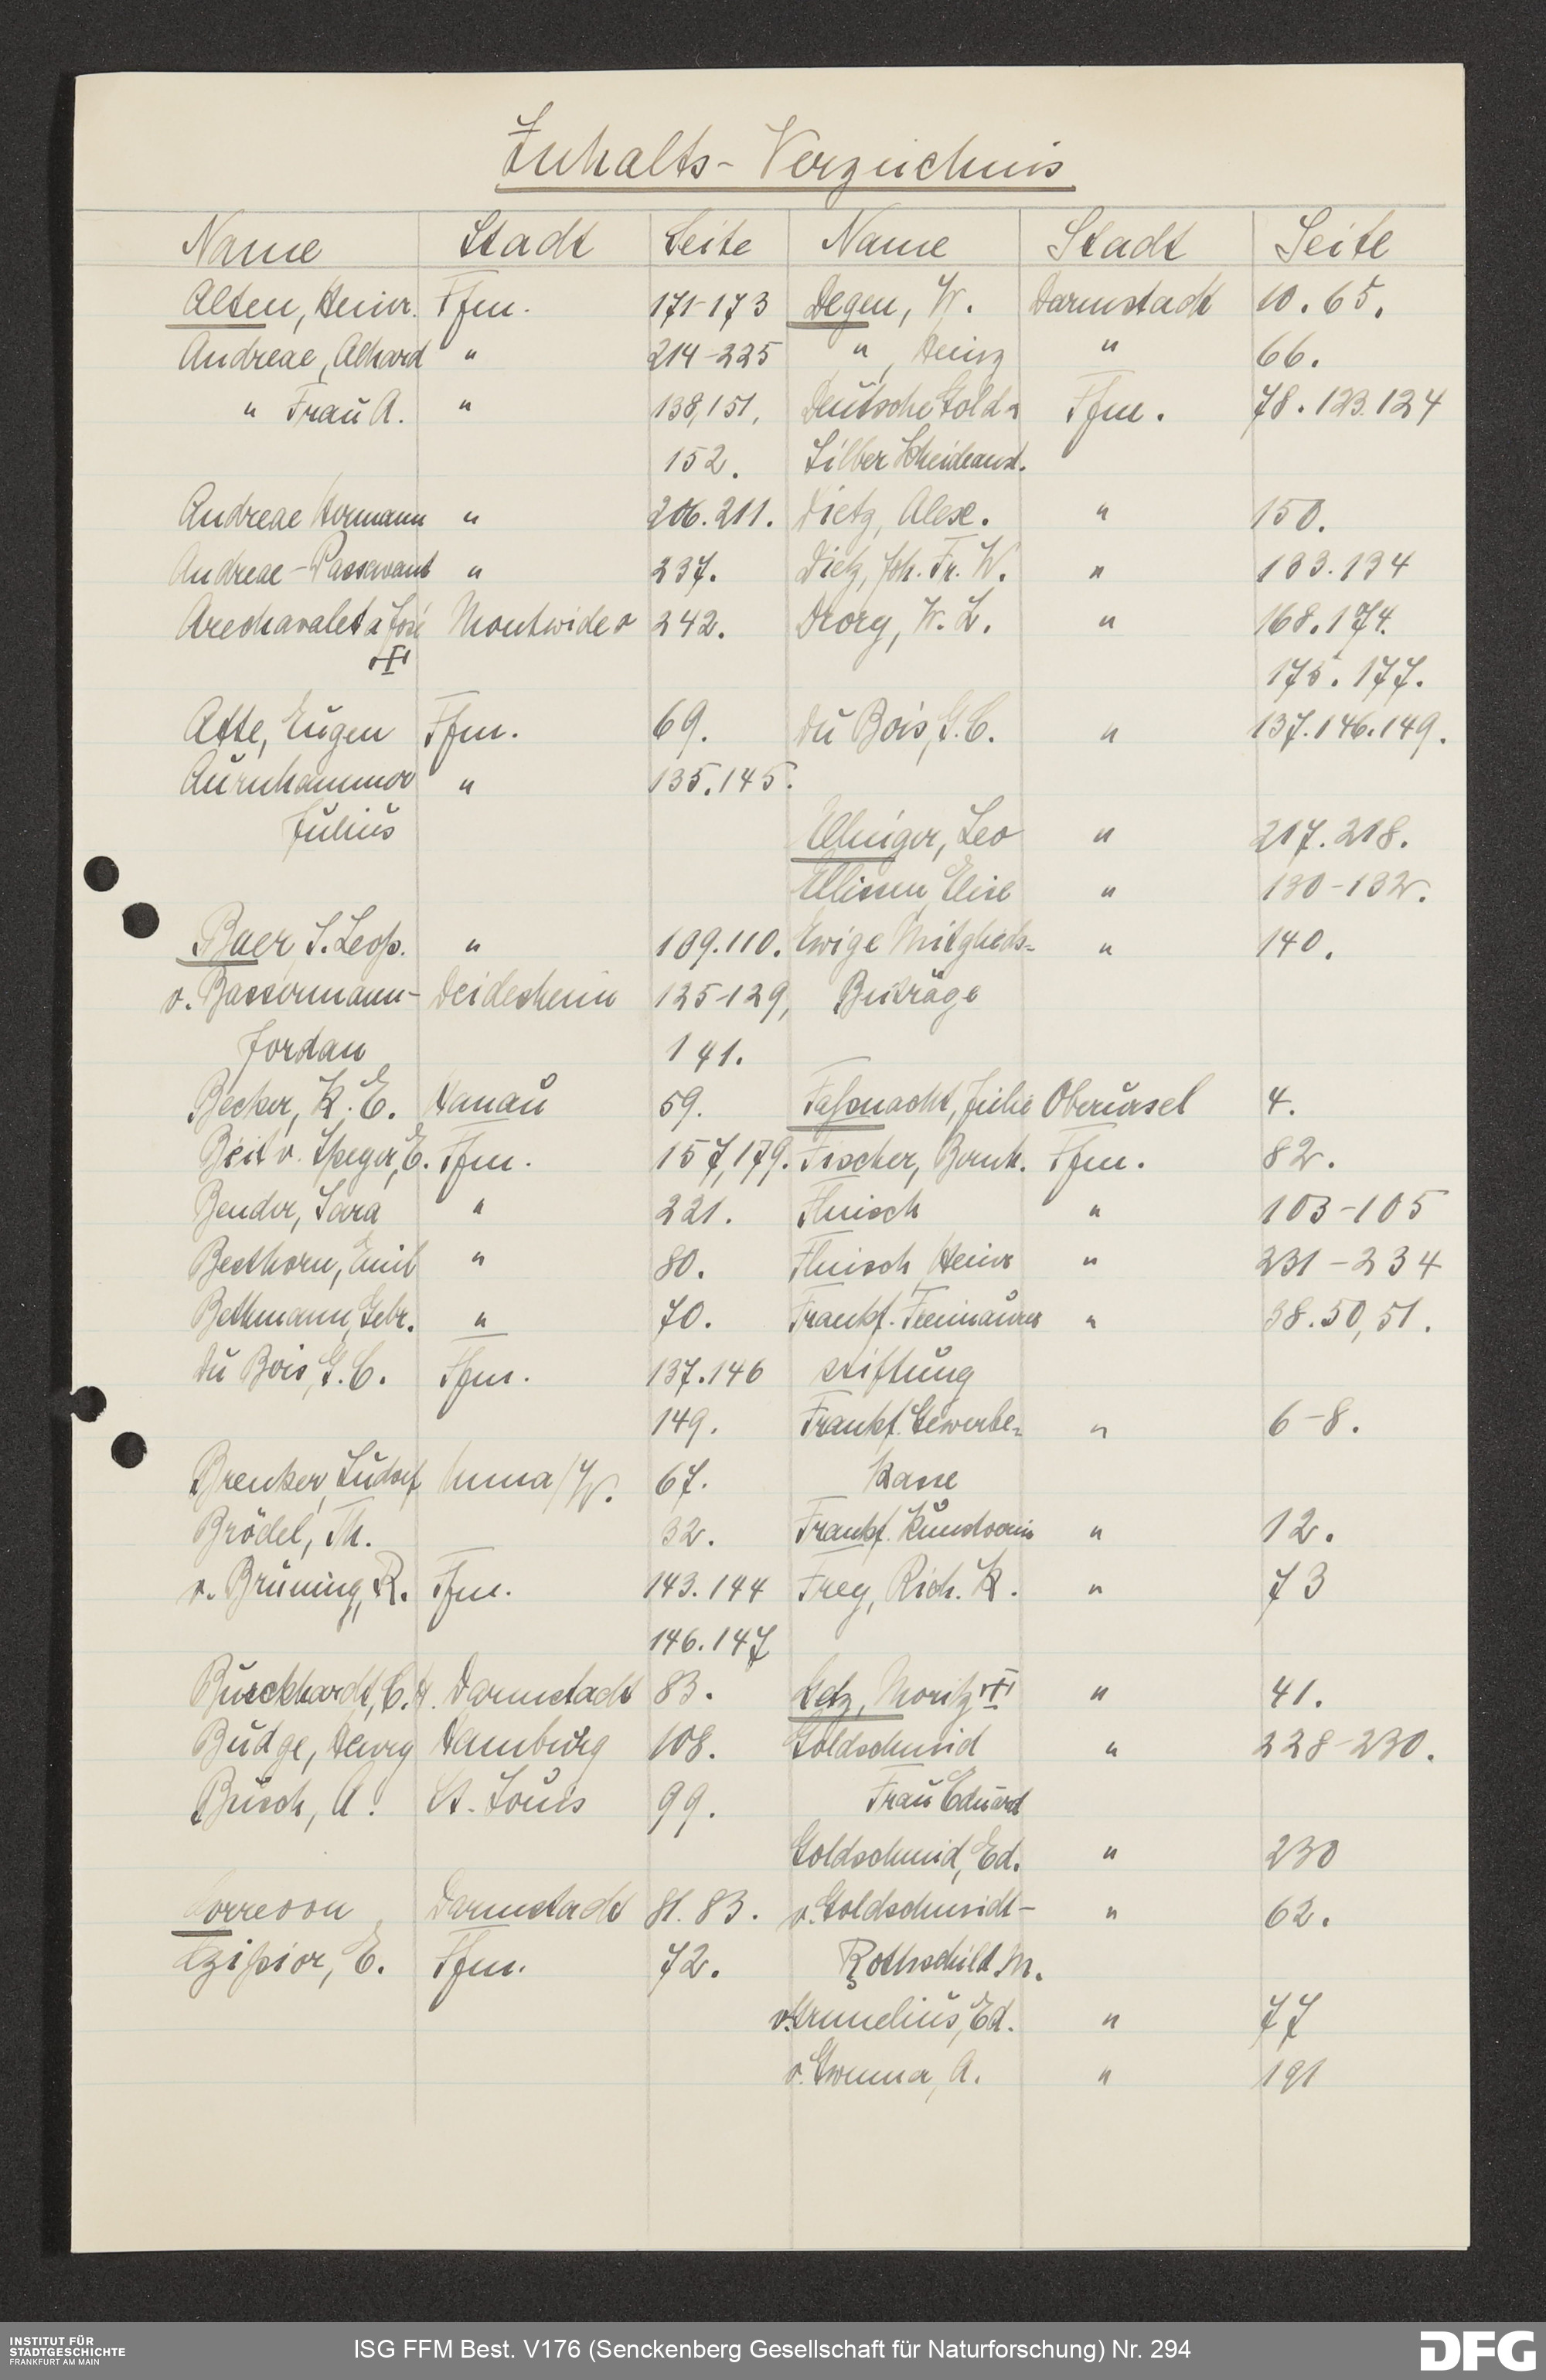 Inhalts-Verzeichnis
Name Stadt Seite
Alten, Heinr. Ffm. 171-173
Andreae, Achard " 214-225
" Frau A. " 138,151,
152.
Andreae Hermann " 206.211.
Andreae-Passavant " 237.
Arechavaleta José Montevideo 242.
Atte, Eugen Ffm. 69.
Aurnhammer " 135.145.
Julius
Baer, S. Leop. " 109.110.
v. Bassermann- Deidesheim 125-129,
Jordan 141.
Becker, K. E. Hanau 59.
Beit v. Speyer, E. Ffm. 157,179.
Bender, Sara " 221.
Besthorn, Emil " 80.
Bethmann, Gebr. " 70.
du Bois, G. C. Ffm. 137.146
149.
Brenker, Ludolf Unna/W. 67.
Brödel, Th. 32.
v. Brüning, R. Ffm. 143.144
146.147
Burckhardt, C. H. Darmstadt 83.
Budge, Henry Hamburg 108.
Busch, A. St. Louis 99.
Correvon Darmstadt 81.83.
Czipior, E. Ffm. 72.
Name Stadt Seite
Degen, W. Darmstadt 10.65.
", Heinz " 66.
Deutsche Gold- Ffm. 78.123.124
Silber Scheideanst.
Dietz, Alex. " 150.
Dietz, Joh. Fr. W. " 133.134
Drory, W. L. " 168.174.
175.177.
du Bois, G. C. " 137.146.149.
Ellinger, Leo " 217.218.
Ellissen, Elise " 130-132.
Ewige Mitglieds- " 140.
Beiträge
Faßnacht, Julie Oberursel 4.
Fischer, Bernh. Ffm. 82.
Fleisch " 103-105
Fleisch Heinr " 231-234
Frankf. Freimaurer " 38.50,51.
stiftung
Frankf. Gewerbe- " 6-8.
kasse
Frankf. Kunstverein " 12.
Frey, Rich. K. " 73
Getz, Moritz " 41.
Goldschmid " 228-230.
Frau Eduard
Goldschmid, Ed. " 230
v. Goldschmidt- " 62.
Rothschild M.
v. Grunelius, Ed. " 77
v. Gwinner, A. " 191
INSTITUT FÜR
STADTGESCHICHTE
FRANKFURT AM MAIN
ISG FFM Best. V176 (Senckenberg Gesellschaft für Naturforschung) Nr. 294
DFG